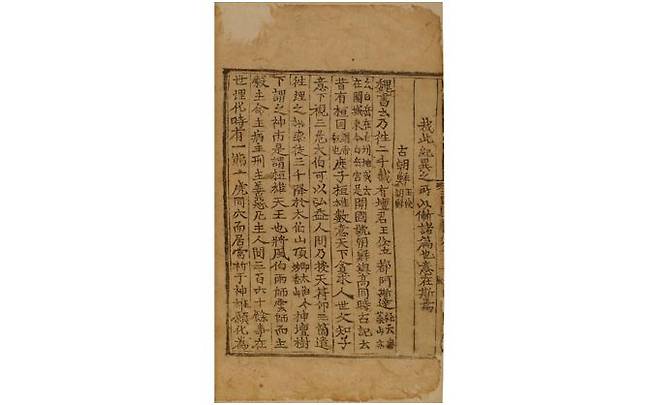 哉此紀異之所以漸諸篇也意在斯焉
古朝鮮王儉朝鮮
魏書云乃徃二千載有壇君王儉立都阿斯達經云無葉山亦
云白岳在白州地或云在開城東今白岳宮是開國號朝鮮與高同時古記云
昔有桓囯謂帝釋也庶子桓雄數意天下貪求人世父知子
意下視三危太伯可以弘益人間乃授天符印三箇遣
徃理之雄率徒三千降於太伯山頂即太伯今妙香山神壇樹
下謂之神市是謂桓雄天王也將風伯雨師雲師而主
糓主命主病主刑主善惡凡主人間三百六十餘事在
世理化時有一熊一虎同穴而居常祈于神雄願化為